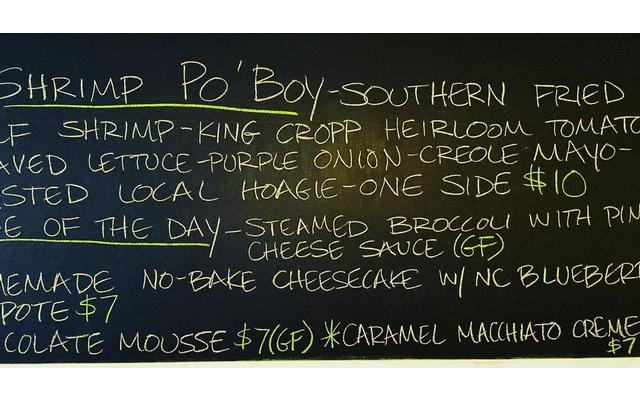 SHRIMP PO'BOY-SOUTHERN FRIED
LF SHRIMP-KING CROPP HEIRLOOM TOMATO
AVED LETTUCE-PURPLE ONION-CREOLE MAYO-
STED LOCAL HOAGIE-ONE SIDE $10
E OF THE DAY-STEAMED BROCCOLI WITH PIN
CHEESE SAUCE (GF)
MEMADE NO-BAKE CHEESECAKE W/ NC BLUEBER
POTE $7
COLATE MOUSSE $7(GF) *CARAMEL MACCHIATO CREME
$7